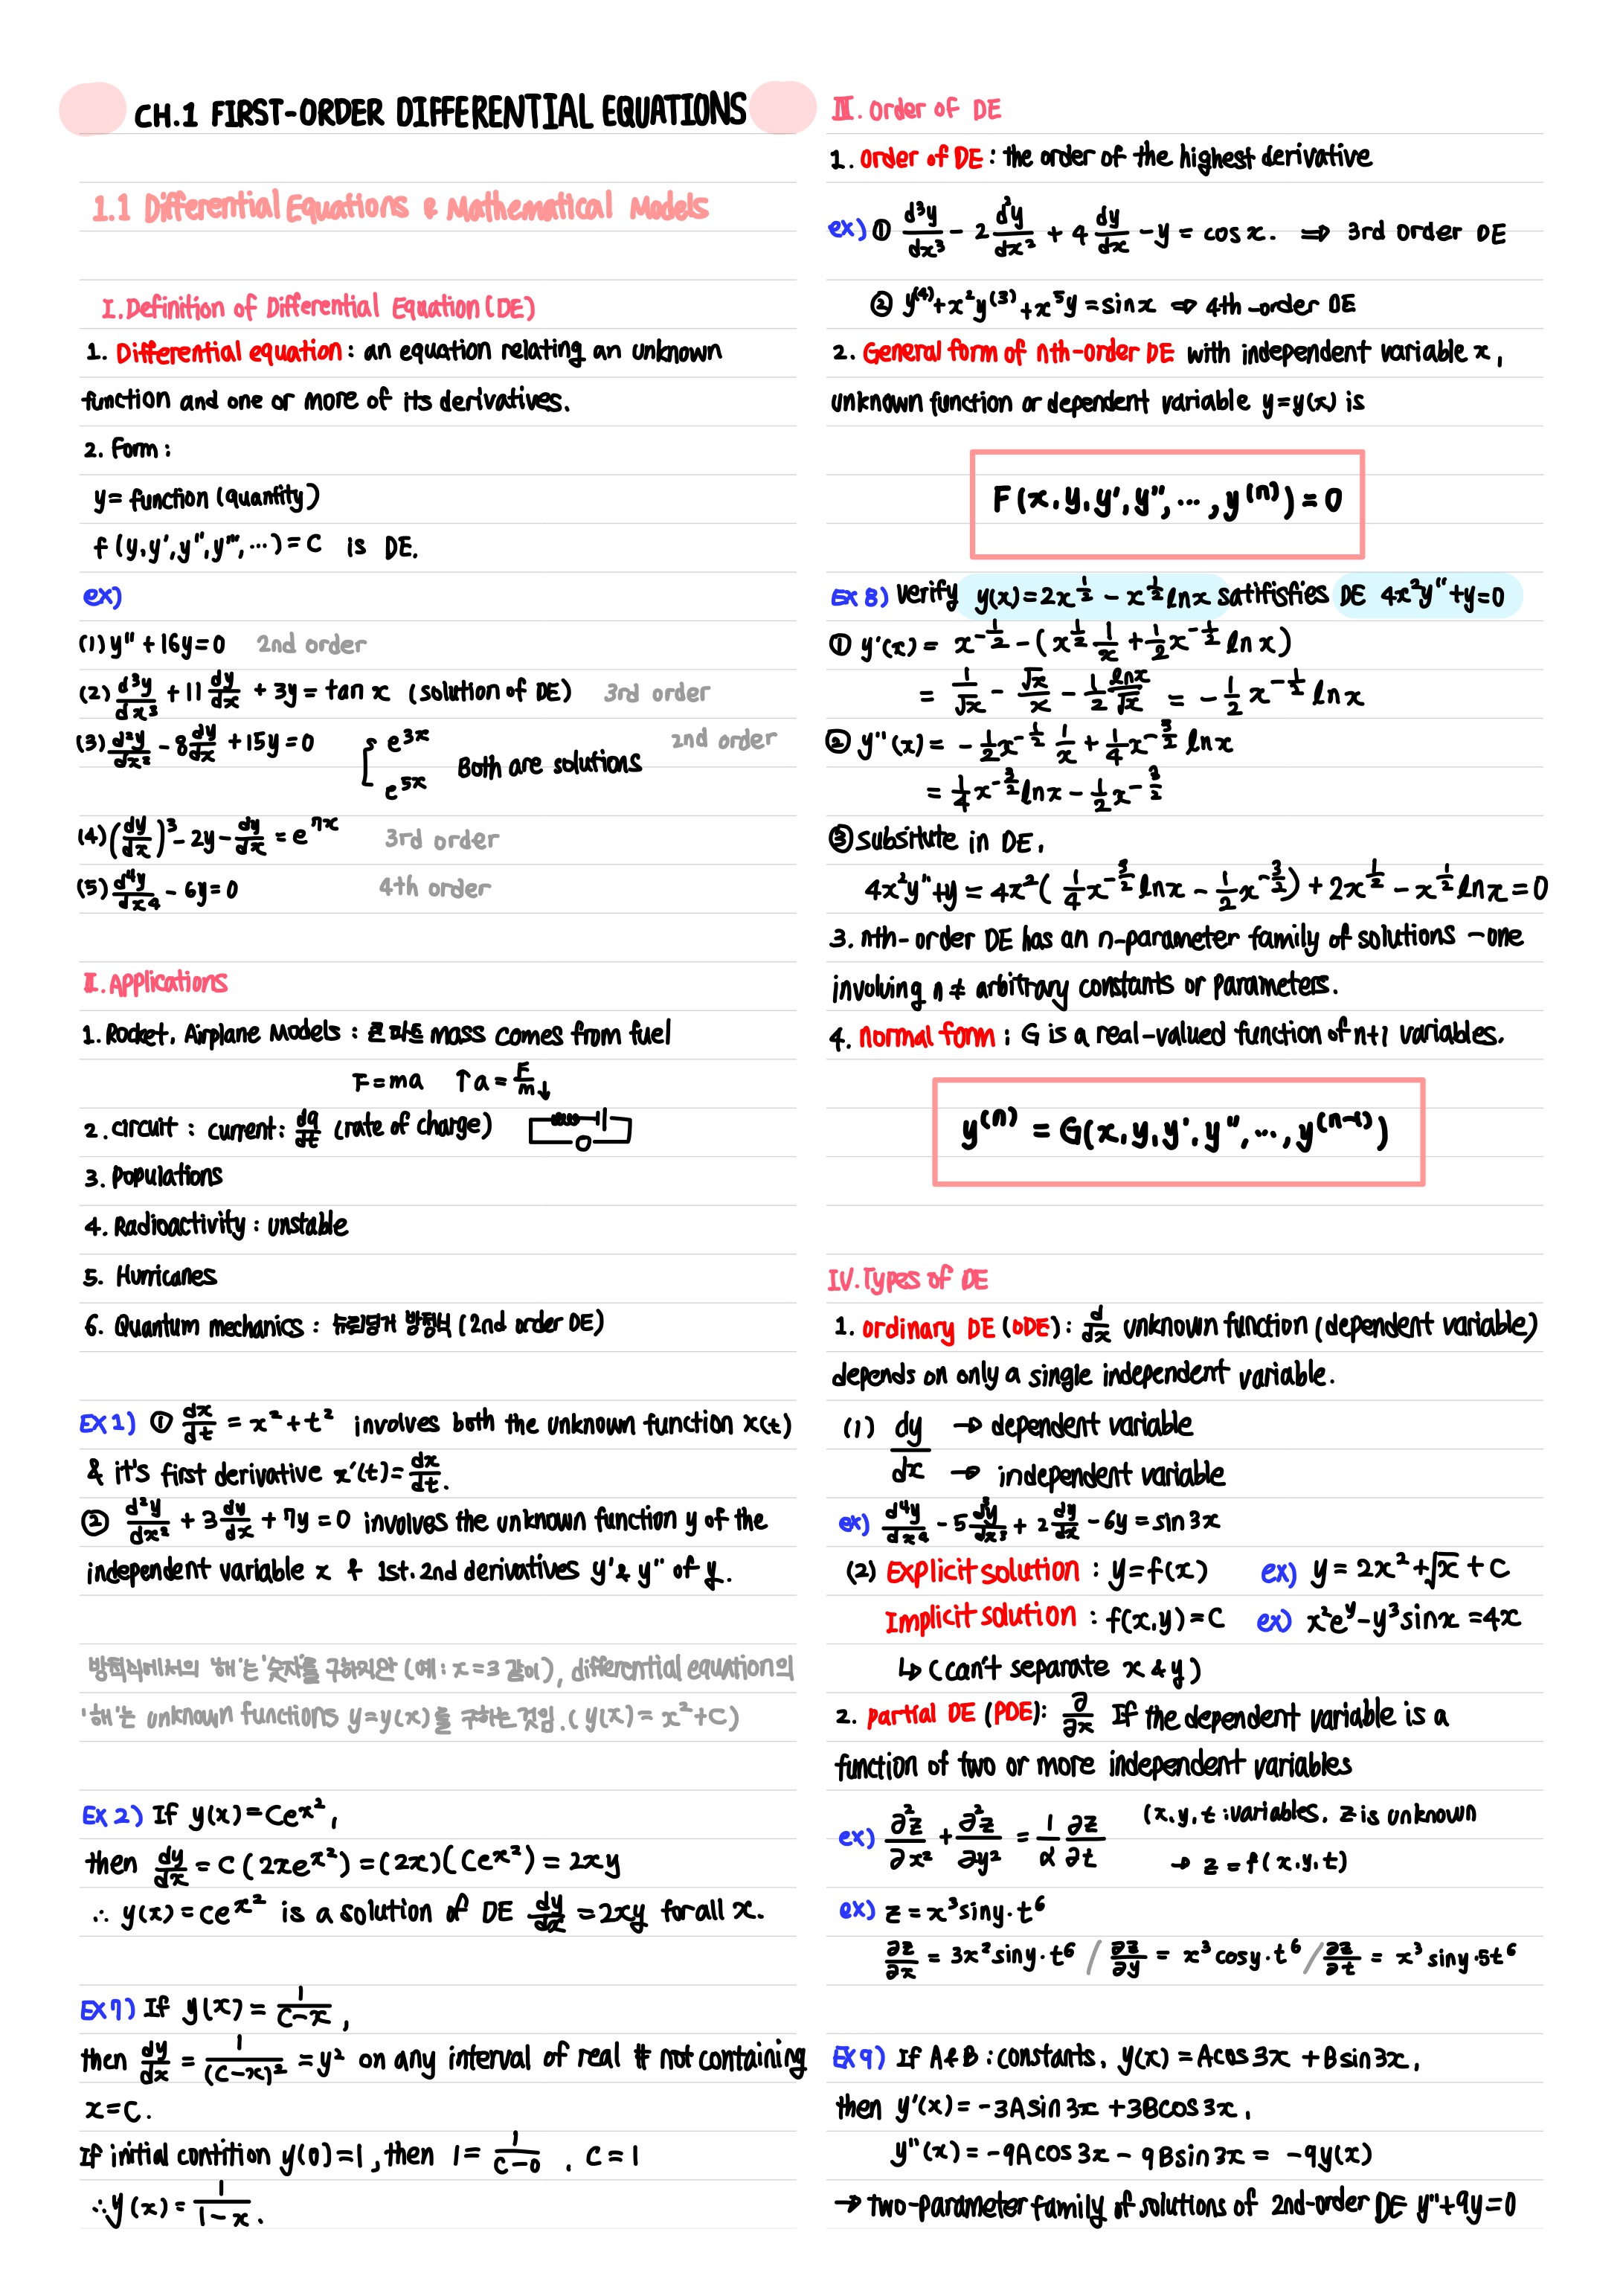 CH.1 FIRST-ORDER DIFFERENTIAL EQUATIONS
1.1 Differential Equations & Mathematical Models
I. Definition of Differential Equation (DE)
1. Differential equation : an equation relating an unknown
function and one or more of its derivatives.
2. Form :
y = function (quantity)
f (y, y', y'', y''', ⋯) = C is DE.
ex)
(1) y'' + 16y = 0 2nd order
(2) d³y/dx³ + 11 dy/dx + 3y = tan x (solution of DE) 3rd order
(3) d²y/dx² - 8 dy/dx + 15y = 0 { e^(3x) 2nd order
e^(5x) Both are solutions
(4) (dy/dx)³ - 2y - dy/dx = e^(7x) 3rd order
(5) d⁴y/dx⁴ - 6y = 0 4th order
II. Applications
1. Rocket, Airplane Models : 큰 파트 mass comes from fuel
F = ma ↑a = F/m↓
2. circuit : current : dq/dt (rate of charge)
3. Populations
4. Radioactivity : unstable
5. Hurricanes
6. Quantum mechanics : 슈뢰딩거 방정식 (2nd order DE)
EX 1) ① dx/dt = x² + t² involves both the unknown function x(t)
& it's first derivative x'(t) = dx/dt.
② d²y/dx² + 3 dy/dx + 7y = 0 involves the unknown function y of the
independent variable x & 1st. 2nd derivatives y' & y'' of y.
방정식에서의 '해'는 '숫자'를 구하지만 (예 : x = 3 같이), differential equation의
'해'는 unknown functions y=y(x)를 구하는 것임. ( y(x) = x²+C )
EX 2) If y(x) = Ce^(x²),
then dy/dx = C ( 2xe^(x²) ) = (2x)( Ce^(x²) ) = 2xy
∴ y(x) = ce^(x²) is a solution of DE dy/dx = 2xy for all x.
EX 7) If y(x) = 1/(C-x),
then dy/dx = 1/(C-x)² = y² on any interval of real # not containing
x = C.
If initial contition y(0) = 1, then 1 = 1/(C-0) , C = 1
∴ y(x) = 1/(1-x).
III. Order of DE
1. Order of DE : the order of the highest derivative
ex) ① d³y/dx³ - 2 d²y/dx² + 4 dy/dx - y = cos x. ⇒ 3rd order DE
② y⁽⁴⁾ + x²y⁽³⁾ + x⁵y = sin x ⇒ 4th-order DE
2. General form of nth-order DE with independent variable x,
unknown function or dependent variable y=y(x) is
F (x, y, y', y'', ⋯, y⁽ⁿ⁾) = 0
EX 8) Verify y(x) = 2x^(1/2) - x^(1/2) ln x satifisfies DE 4x²y''+y=0
① y'(x) = x^(-1/2) - ( x^(1/2) 1/x + 1/2 x^(-1/2) ln x )
= 1/√x - √x/x - 1/2 ln x/√x = - 1/2 x^(-1/2) ln x
② y''(x) = - 1/2 x^(-1/2) 1/x + 1/4 x^(-3/2) ln x
= 1/4 x^(-3/2) ln x - 1/2 x^(-3/2)
③ subsitute in DE,
4x²y''+y = 4x² ( 1/4 x^(-3/2) ln x - 1/2 x^(-3/2) ) + 2x^(1/2) - x^(1/2) ln x = 0
3. nth-order DE has an n-parameter family of solutions - one
involving n ≠ arbitrary constants or parameters.
4. normal form : G is a real-valued function of n+1 variables.
y⁽ⁿ⁾ = G(x, y, y', y'', ⋯, y⁽ⁿ⁻¹⁾)
IV. Types of DE
1. ordinary DE (ODE) : d/dx unknown function (dependent variable)
depends on only a single independent variable.
(1) dy → dependent variable
dx → independent variable
ex) d⁴y/dx⁴ - 5 d³y/dx³ + 2 dy/dx - 6y = sin 3x
(2) Explicit solution : y = f(x) ex) y = 2x² + √x + C
Implicit solution : f(x,y) = C ex) x²e^y - y³ sin x = 4x
↳ (can't separate x & y)
2. partial DE (PDE) : ∂/∂x If the dependent variable is a
function of two or more independent variables
ex) ∂²z/∂x² + ∂²z/∂y² = 1/α ∂z/∂t (x, y, t : variables. z is unknown
→ z = f (x, y, t)
ex) z = x³ sin y · t⁶
∂z/∂x = 3x² sin y · t⁶ / ∂z/∂y = x³ cos y · t⁶ / ∂z/∂t = x³ sin y · 5t⁶
EX 9) If A & B : constants, y(x) = A cos 3x + B sin 3x,
then y'(x) = -3A sin 3x + 3B cos 3x,
y''(x) = -9A cos 3x - 9B sin 3x = -9y(x)
→ two-parameter family of solutions of 2nd-order DE y''+9y=0